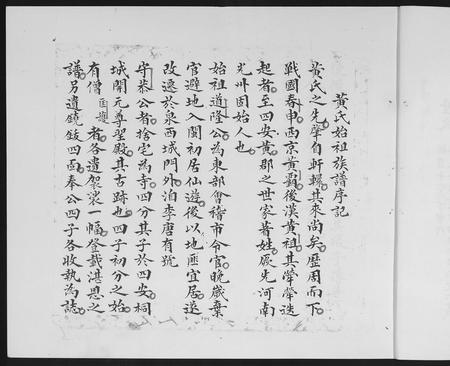 黃氏始祖族譜序記
黃氏之先肇自軒轅其來尚矣歷周而下
戰國春申西京黃霸後漢黃祖其犖犖迭
起者至四安黃郡之世家著姓厥先河南
光州固始人也
始祖道隆公為東部會稽市令官晚歲棄
官避地入閩初居仙遊後以地匪宜居遂
改遷於泉西城門外泊李唐有號
守恭公者捨宅為寺四分其子於四安祠
城開元尊聖殿其古跡也四子初分之始
有僧匡護者各遺袈裟一幅登載湛恩之
譜另遺鐃鈸四面奉公四子各收執為誌